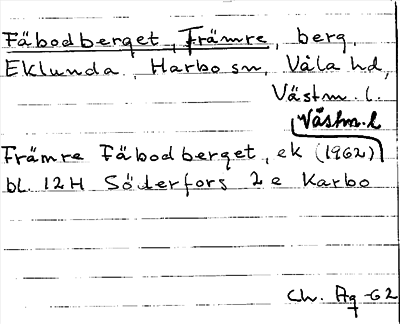 Fäbodberget, Främre, berg,
Eklunda, Harbo sn, Våla hd,
Västm. l.
Västm. l
Främre Fäbodberget, ek (1962)
bl. 12H Söderfors 2 e Karbo
Ch. Ag -62